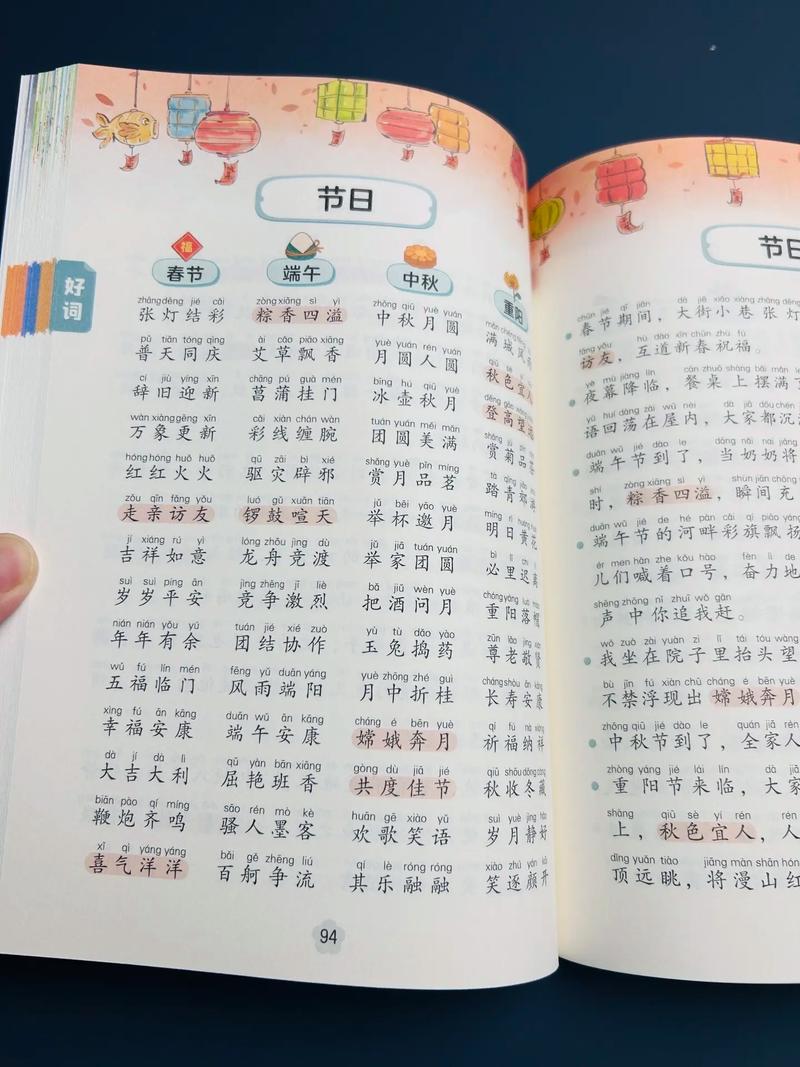 节日
好词
福
春节 端午 中秋 重阳
zhāng dēng jié cǎi zòng xiāng sì yì zhōng qiū yuè yuán
张灯结彩 粽香四溢 中秋月圆 满城风
pǔ tiān tóng qìng ài cǎo piāo xiāng yuè yuán rén yuán
普天同庆 艾草飘香 月圆人圆 秋色宜人
cí jiù yíng xīn chāng pú guà mén bīng hú qiū yuè
辞旧迎新 菖蒲挂门 冰壶秋月 登高望
wàn xiàng gēng xīn cǎi xiàn chán wàn tuán yuán měi mǎn
万象更新 彩线缠腕 团圆美满 赏菊品
hóng hóng huǒ huǒ qū zāi bì xié shǎng yuè pǐn míng
红红火火 驱灾辟邪 赏月品茗 踏青郊
zǒu qīn fǎng yǒu luó gǔ xuān tiān jǔ bēi yāo yuè
走亲访友 锣鼓喧天 举杯邀月 明日黄花
jí xiáng rú yì lóng zhōu jìng dù jǔ jiā tuán yuán
吉祥如意 龙舟竞渡 举家团圆 必里迟离
suì suì píng ān jìng zhēng jī liè bǎ jiǔ wèn yuè
岁岁平安 竞争激烈 把酒问月 重阳落帽
nián nián yǒu yú tuán jié xié zuò yù tù dǎo yào
年年有余 团结协作 玉兔捣药 尊老敬贤
wǔ fú lín mén fēng yǔ duān yáng yuè zhōng zhé guì
五福临门 风雨端阳 月中折桂 长寿安康
xìng fú ān kāng duān wǔ ān kāng cháng é bēn yuè
幸福安康 端午安康 嫦娥奔月 祈福纳祥
dà jí dà lì qū yàn bān xiāng gòng dù jiā jié
大吉大利 屈艳班香 共度佳节 秋收冬藏
biān pào qí míng sāo rén mò kè huān gē xiào yǔ
鞭炮齐鸣 骚人墨客 欢歌笑语 岁月静好
xǐ qì yáng yáng bǎi gě zhēng liú qí lè róng róng
喜气洋洋 百舸争流 其乐融融 笑逐颜开
94
节日
chūn jié qī jiān dà jiē xiǎo xiàng zhāng
春节期间，大街小巷张灯
fǎng yǒu hù dào xīn chūn zhù fú
访友，互道新春祝福。
yè mù jiàng lín cān zhuō shàng bǎi mǎn
夜幕降临，餐桌上摆满了
yǔ huí dàng zài wū nèi dà jiā dōu chén
语回荡在屋内，大家都沉
duān wǔ jié dào le dāng nǎi nai jiāng
端午节到了，当奶奶将
shí zòng xiāng sì yì shùn jiān chōng
时，粽香四溢，瞬间充
duān wǔ jié de hé pàn cǎi qí piāo yáng
端午节的河畔彩旗飘扬
ér men hǎn zhe kǒu hào fèn lì de
儿们喊着口号，奋力地
shēng zhōng nǐ zhuī wǒ gǎn
声中你追我赶。
wǒ zuò zài yuàn zi lǐ tái tóu wàng
我坐在院子里抬头望
bù jīn fú xiàn chū cháng é bēn yuè
不禁浮现出嫦娥奔月
zhōng qiū jié dào le quán jiā rén
中秋节到了，全家人
chóng yáng jié lái lín dà jiā
重阳节来临，大家
shàng qiū sè yí rén rén
上，秋色宜人，人
dǐng yuǎn tiào jiāng màn shān hóng
顶远眺，将漫山红